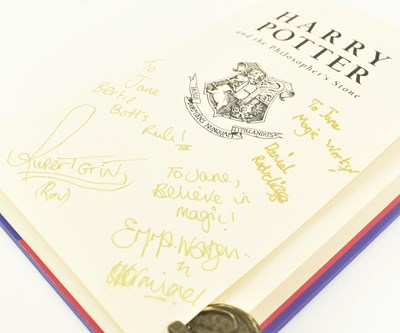 HARRY
POTTER
and the Philosopher's Stone
To
Jane
Bertie
Bott's
Rule!
Rupert Grint
(Ron)
To Jane
Magic Works!
Daniel
Radcliffe
To Jane,
Believe in
magic!
Emma Watson
Hermione